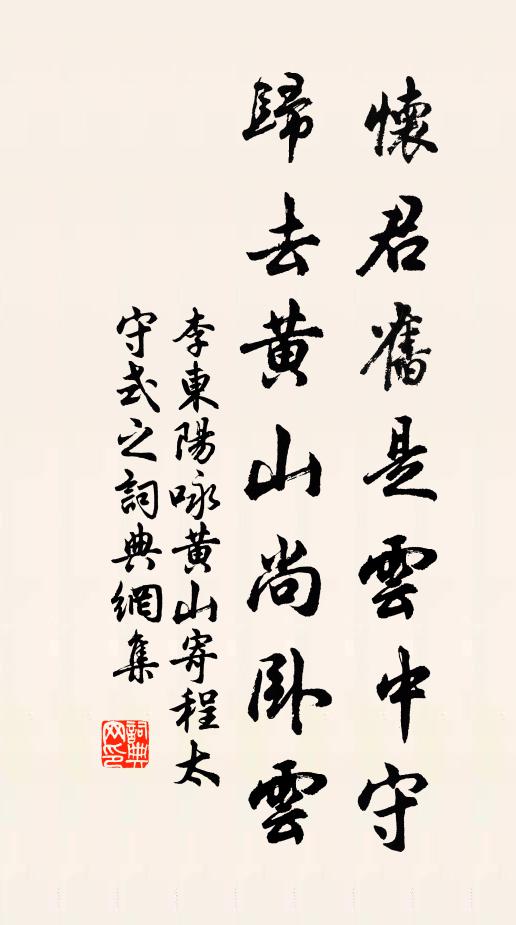 懷君舊是雲中守
歸去黃山尚卧雲
李東陽咏黃山寄程太
守式之詞典網集
詞典
网印